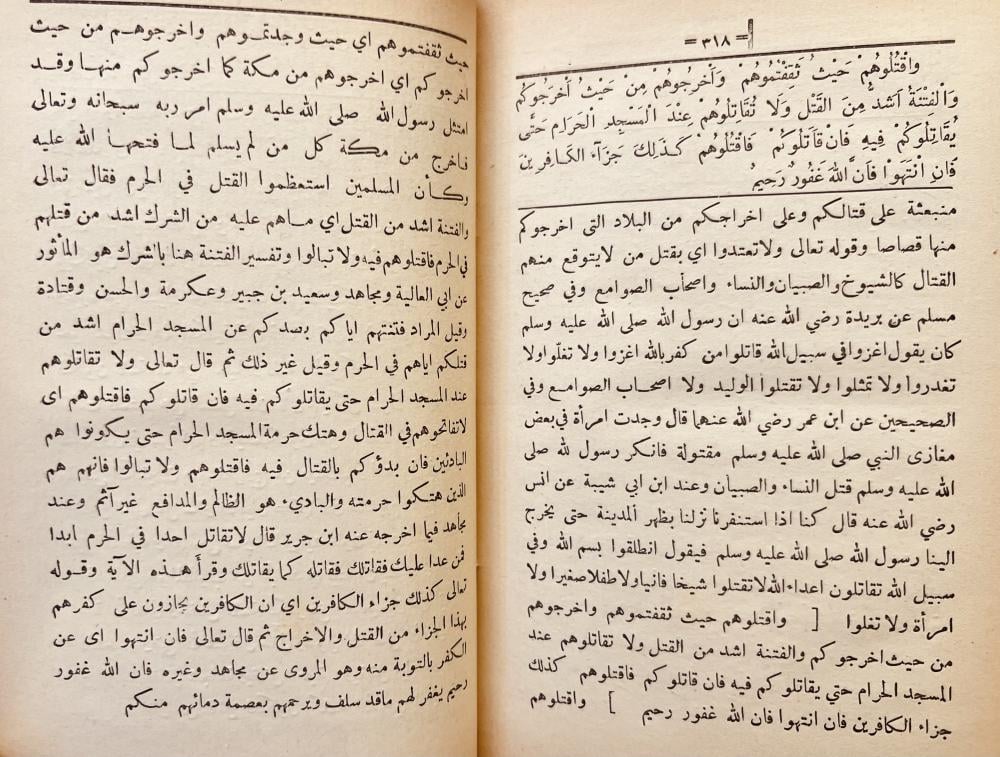 =٣١٨=
وَاقْتُلُوهُمْ حَيْثُ ثَقِفْتُمُوهُمْ وَأَخْرِجُوهُمْ مِنْ حَيْثُ أَخْرَجُوكُمْ
وَالْفِتْنَةُ أَشَدُّ مِنَ الْقَتْلِ وَلَا تُقَاتِلُوهُمْ عِنْدَ الْمَسْجِدِ الْحَرَامِ حَتَّى
يُقَاتِلُوكُمْ فِيهِ فَانْ قَاتَلُوكُمْ فَاقْتُلُوهُمْ كَذَلِكَ جَزَآءُ الْكَافِرِينَ
فَانِ انْتَهَوْا فَانَّ اللهَ غَفُورٌ رَحِيمٌ
منبعثة على قتالكم وعلى اخراجكم من البلاد التى اخرجوكم
منها قصاصا وقوله تعالى ولا تعتدوا اي بقتل من لا يتوقع منهم
القتال كالشيوخ والصبيان والنساء واصحاب الصوامع وفي صحيح
مسلم عن بريدة رضي الله عنه ان رسول الله صلى الله عليه وسلم
كان يقول اغزوا في سبيل الله قاتلوا من كفر بالله اغزوا ولا تغلوا ولا
تغدروا ولا تمثلوا ولا تقتلوا الوليد ولا اصحاب الصوامع وفي
الصحيحين عن ابن عمر رضي الله عنهما قال وجدت امرأة في بعض
مغازى النبي صلى الله عليه وسلم مقتولة فانكر رسول لله صلى
الله عليه وسلم قتل النساء والصبيان وعند ابن ابي شيبة عن انس
رضي الله عنه قال كنا اذا استنفرنا نزلنا بظهر المدينة حتى يخرج
الينا رسول الله صلى الله عليه وسلم فيقول انطلقوا بسم الله وفي
سبيل الله تقاتلون اعداء الله لا تقتلوا شيخا فانيا ولا طفلا صغيرا ولا
امرأة ولا تغلوا [ واقتلوهم حيث ثقفتموهم واخرجوهم
من حيث اخرجوكم والفتنة اشد من القتل ولا تقاتلوهم عند
المسجد الحرام حتي يقاتلوكم فيه فان قاتلوكم فاقتلوهم كذلك
جزاء الكافرين فان انتهوا فان الله غفور رحيم ] واقتلوهم
حيث ثقفتموهم اي حيث وجدتموهم واخرجوهم من حيث
اخرجوكم اي اخرجوهم من مكة كما اخرجوكم منها وقد
امتثل رسول الله صلى الله عليه وسلم امر ربه سبحانه وتعالى
فاخرج من مكة كل من لم يسلم لما فتحها الله عليه
وكأن المسلمين استعظموا القتل في الحرم فقال تعالى
والفتنة اشد من القتل اي ماهم عليه من الشرك اشد من قتلهم
في الحرم فاقتلوهم فيه ولا تبالوا وتفسير الفتنة هنا بالشرك هو المأثور
عن ابي العالية ومجاهد وسعيد بن جبير وعكرمة والحسن وقتادة
وقيل المراد فتنتهم اياكم بصدكم عن المسجد الحرام اشد من
قتلكم اياهم في الحرم وقيل غير ذلك ثم قال تعالى ولا تقاتلوهم
عند المسجد الحرام حتى يقاتلوكم فيه فان قاتلوكم فاقتلوهم اى
لا تفاتحوهم في القتال وهتك حرمة المسجد الحرام حتى يكونوا هم
البادئين فان بدؤكم بالقتال فيه فاقتلوهم ولا تبالوا فانهم هم
الذين هتكوا حرمته والبادىء هو الظالم والمدافع غير آثم وعند
مجاهد فيما اخرجه عنه ابن جرير قال لا تقاتل احدا في الحرم ابدا
فمن عدا عليك فقاتلك فقاتله كما يقاتلك وقرأ هذه الآية وقوله
تعالى كذلك جزاء الكافرين اي ان الكافرين يجازون على كفرهم
بهذا الجزاء من القتل والاخراج ثم قال تعالى فان انتهوا اى عن
الكفر بالتوبة منه وهو المروى عن مجاهد وغيره فان الله غفور
رحيم يغفر لهم ماقد سلف ويرحمهم بعصمة دمائهم منكم